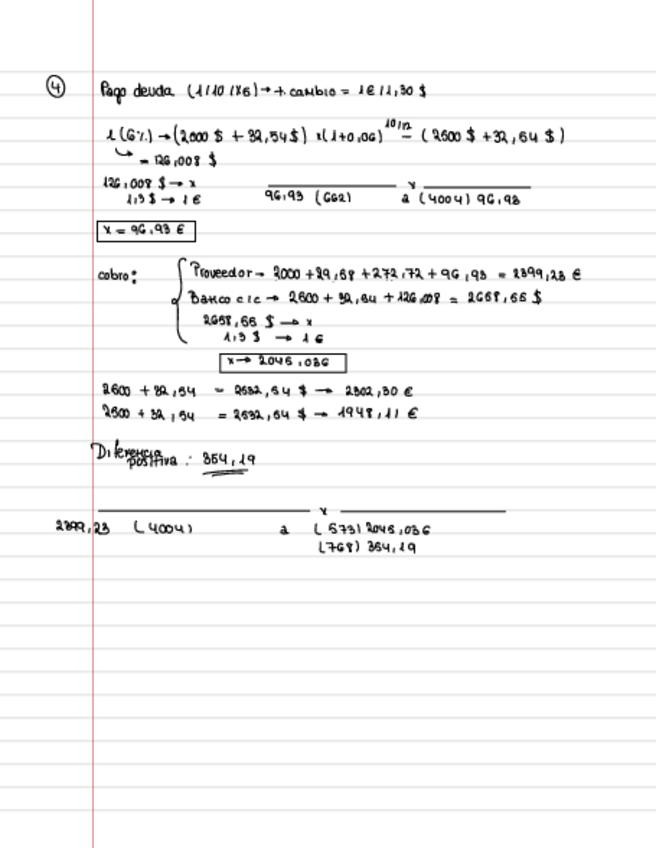 ④ Pago deuda (1/10/1X6) → + cambio = 1€ / 1,30 $
i (6%) → (2000 $ + 32,54 $) x (1+0,06)^10/12 - (2500 $ + 32,54 $)
↳ = 126,008 $
126,008 $ → x
1,3 $ → 1 €
96,93 (662) x a (4004) 96,93
x = 96,93 €
cobro:
Proveedor → 2000 + 29,58 + 272,72 + 96,93 = 2399,23 €
Banco c/c → 2500 + 32,54 + 126,008 = 2658,55 $
2658,55 $ → x
1,3 $ → 1 €
x → 2045,036
2500 + 32,54 = 2532,54 $ → 2302,30 €
2500 + 32,54 = 2532,54 $ → 1948,11 €
Diferencia positiva : 354,19
x
2399,23 (4004) a (573) 2045,036
(768) 354,19